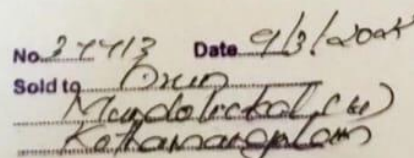 No. 37713 Date 9/3/2025
Sold to Arun
Mundolickal (H)
Kothamangalam